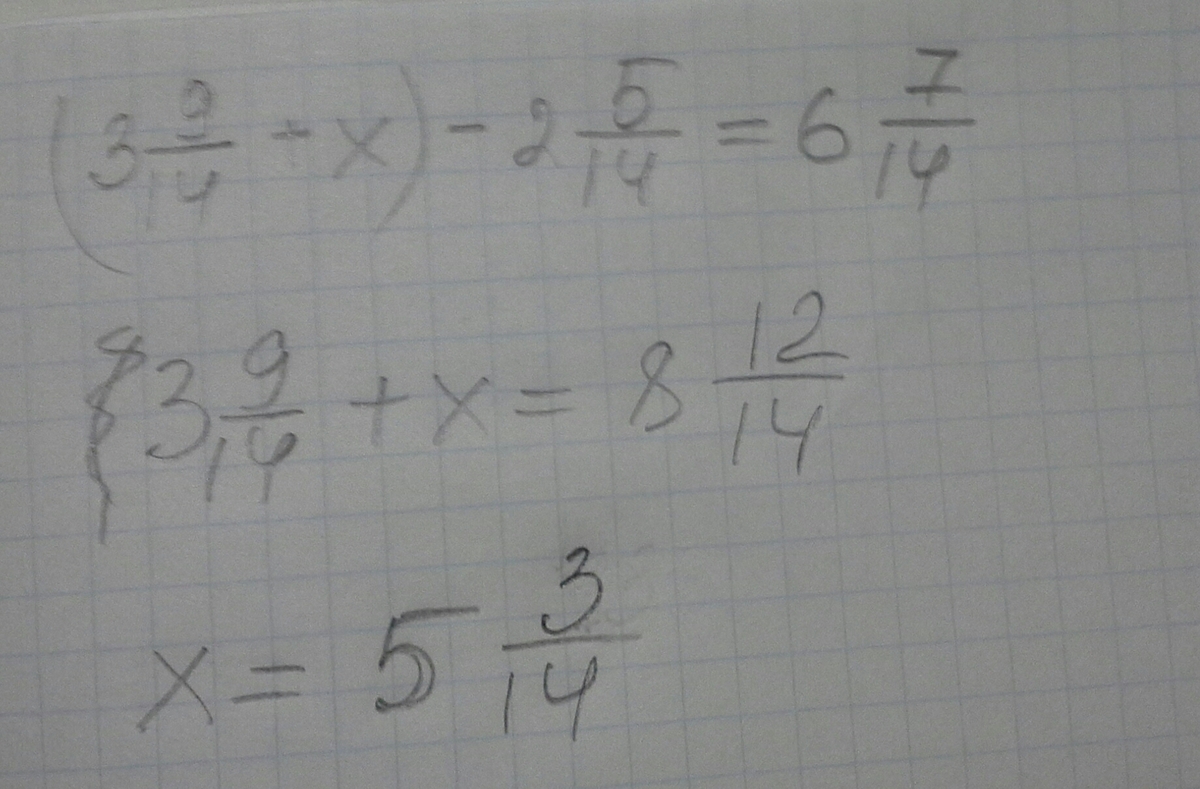 (3 9/14 + x) - 2 5/14 = 6 7/14
3 9/14 + x = 8 12/14
x = 5 3/14